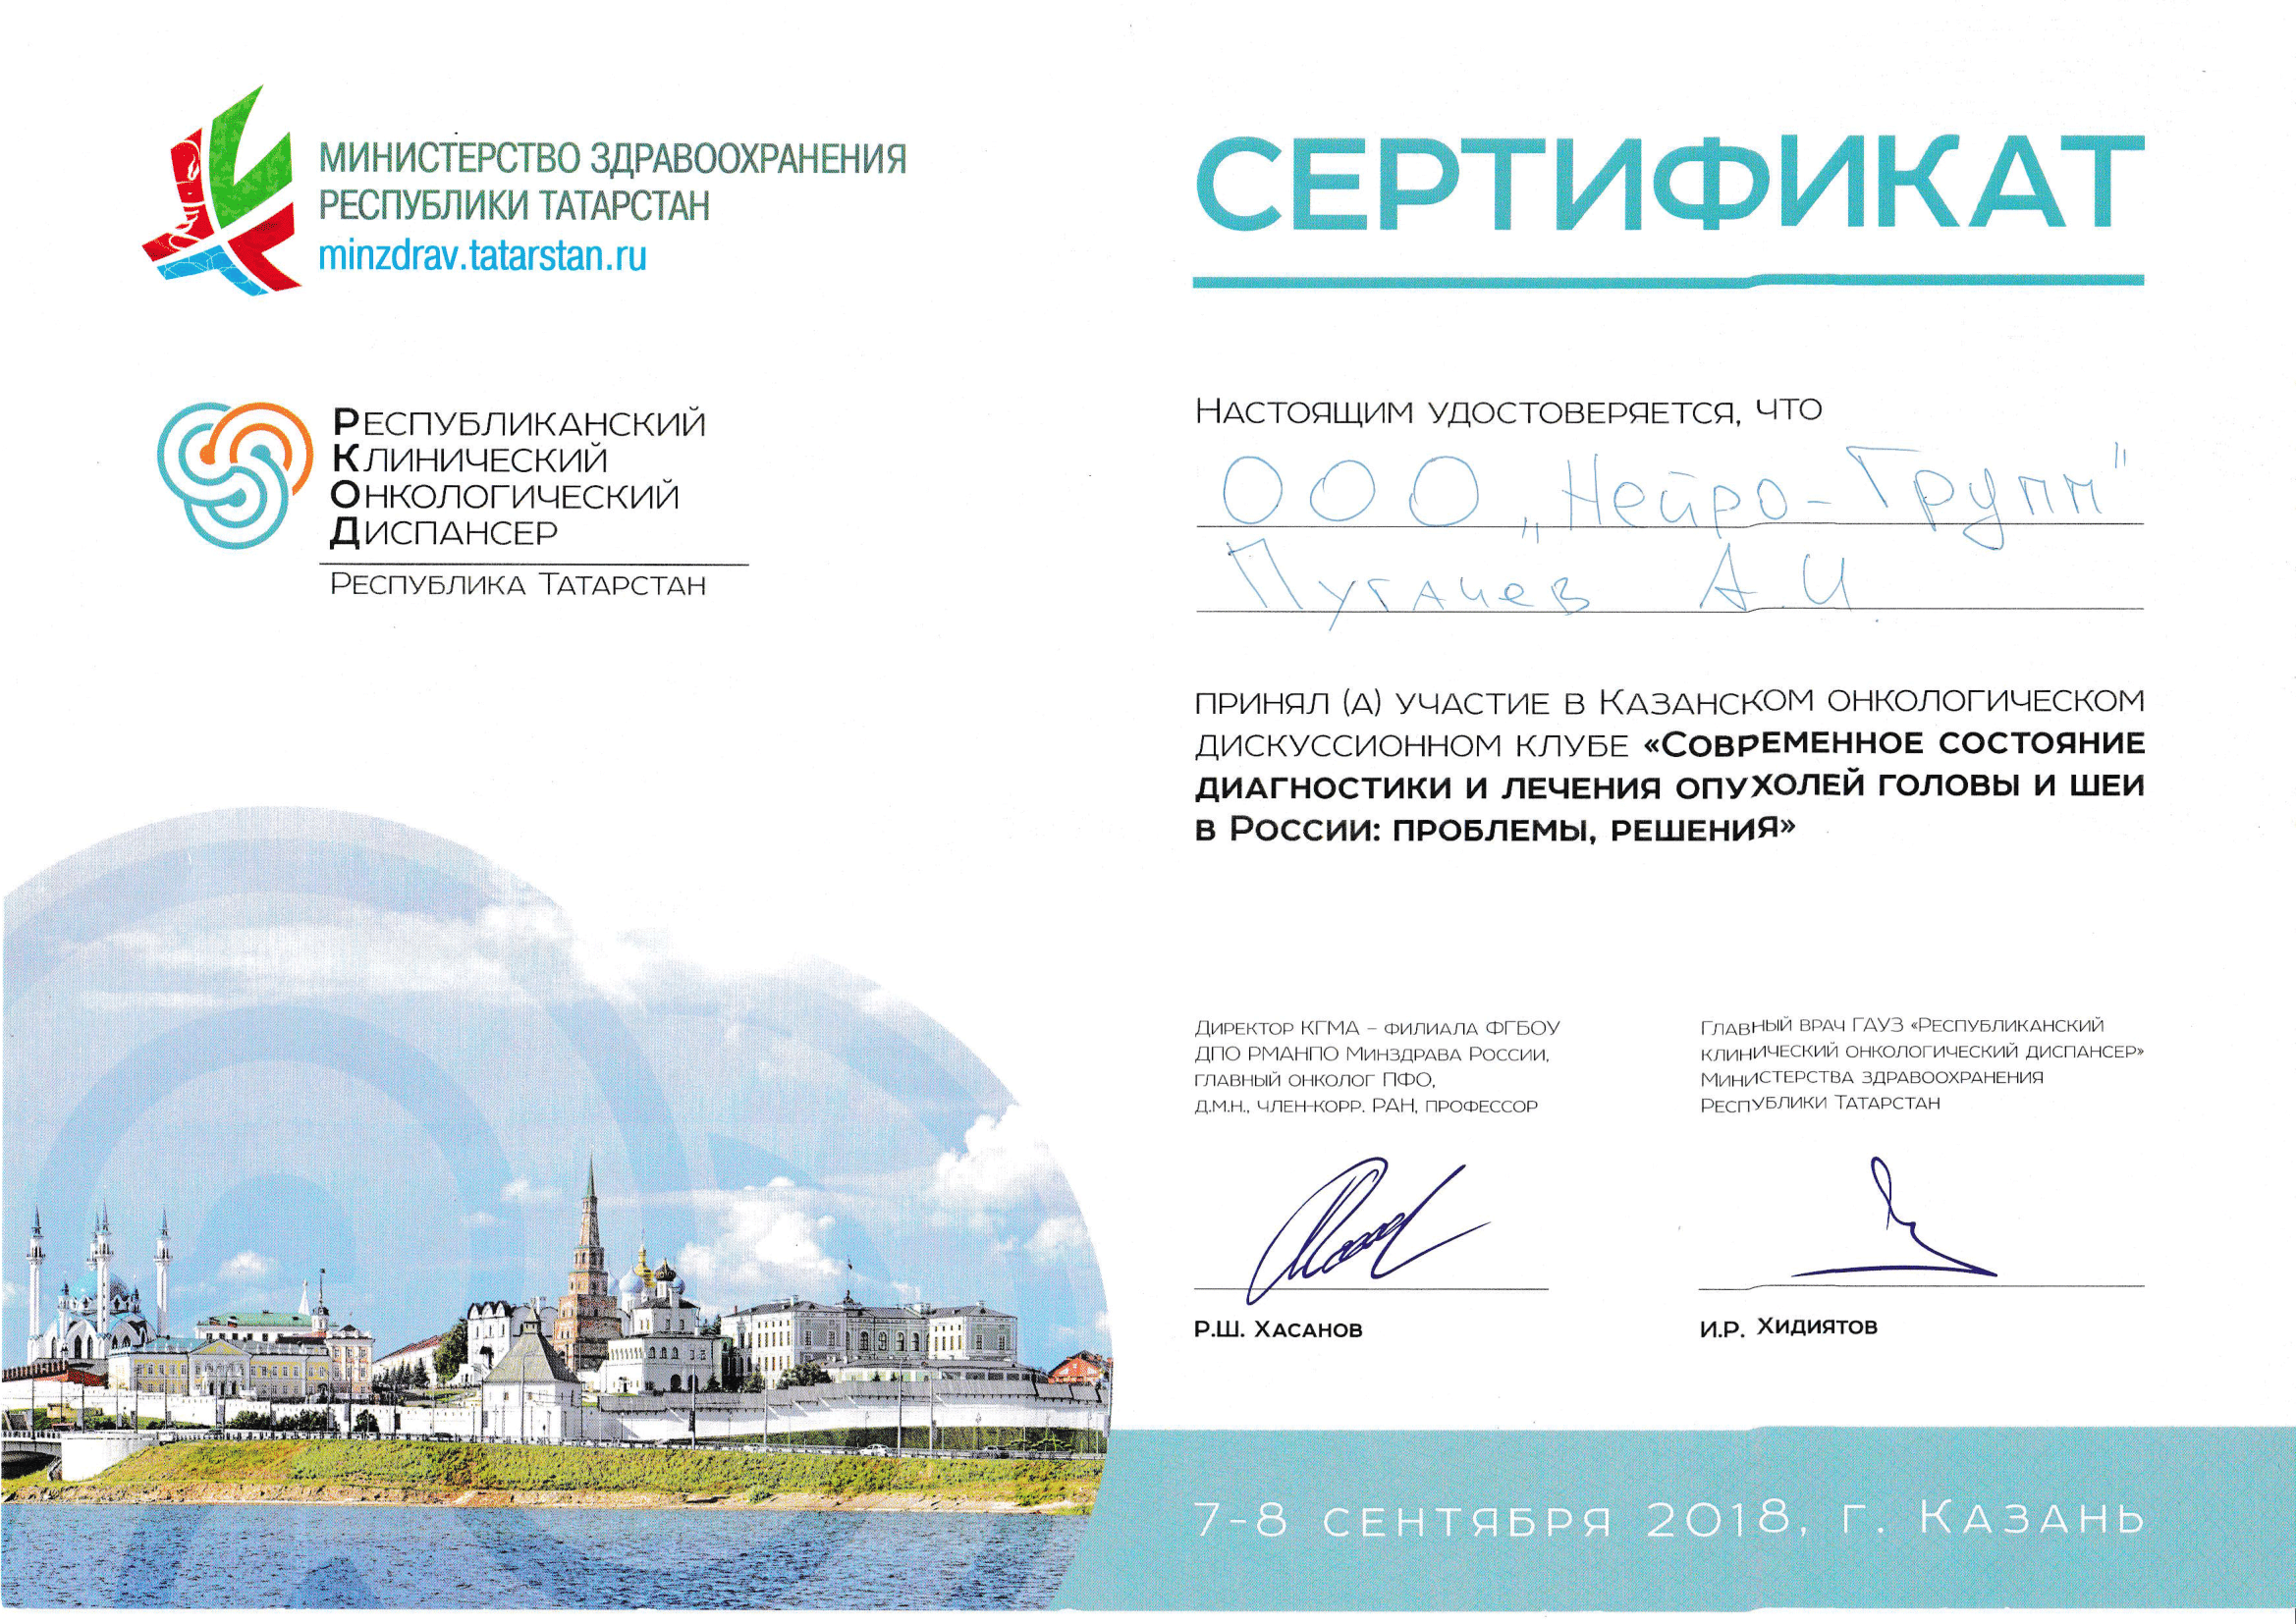 МИНИСТЕРСТВО ЗДРАВООХРАНЕНИЯ
РЕСПУБЛИКИ ТАТАРСТАН
minzdrav.tatarstan.ru
РЕСПУБЛИКАНСКИЙ
КЛИНИЧЕСКИЙ
ОНКОЛОГИЧЕСКИЙ
ДИСПАНСЕР
РЕСПУБЛИКА ТАТАРСТАН
СЕРТИФИКАТ
НАСТОЯЩИМ УДОСТОВЕРЯЕТСЯ, ЧТО
ООО „Нейро-Групп"
Пугачев А.И.
ПРИНЯЛ (А) УЧАСТИЕ В КАЗАНСКОМ ОНКОЛОГИЧЕСКОМ
ДИСКУССИОННОМ КЛУБЕ «СОВРЕМЕННОЕ СОСТОЯНИЕ
ДИАГНОСТИКИ И ЛЕЧЕНИЯ ОПУХОЛЕЙ ГОЛОВЫ И ШЕИ
В РОССИИ: ПРОБЛЕМЫ, РЕШЕНИЯ»
ДИРЕКТОР КГМА – ФИЛИАЛА ФГБОУ
ДПО РМАНПО МИНЗДРАВА РОССИИ,
ГЛАВНЫЙ ОНКОЛОГ ПФО,
Д.М.Н., ЧЛЕН-КОРР. РАН, ПРОФЕССОР
Р.Ш. ХАСАНОВ
ГЛАВНЫЙ ВРАЧ ГАУЗ «РЕСПУБЛИКАНСКИЙ
КЛИНИЧЕСКИЙ ОНКОЛОГИЧЕСКИЙ ДИСПАНСЕР»
МИНИСТЕРСТВА ЗДРАВООХРАНЕНИЯ
РЕСПУБЛИКИ ТАТАРСТАН
И.Р. ХИДИЯТОВ
7-8 СЕНТЯБРЯ 2018, Г. КАЗАНЬ